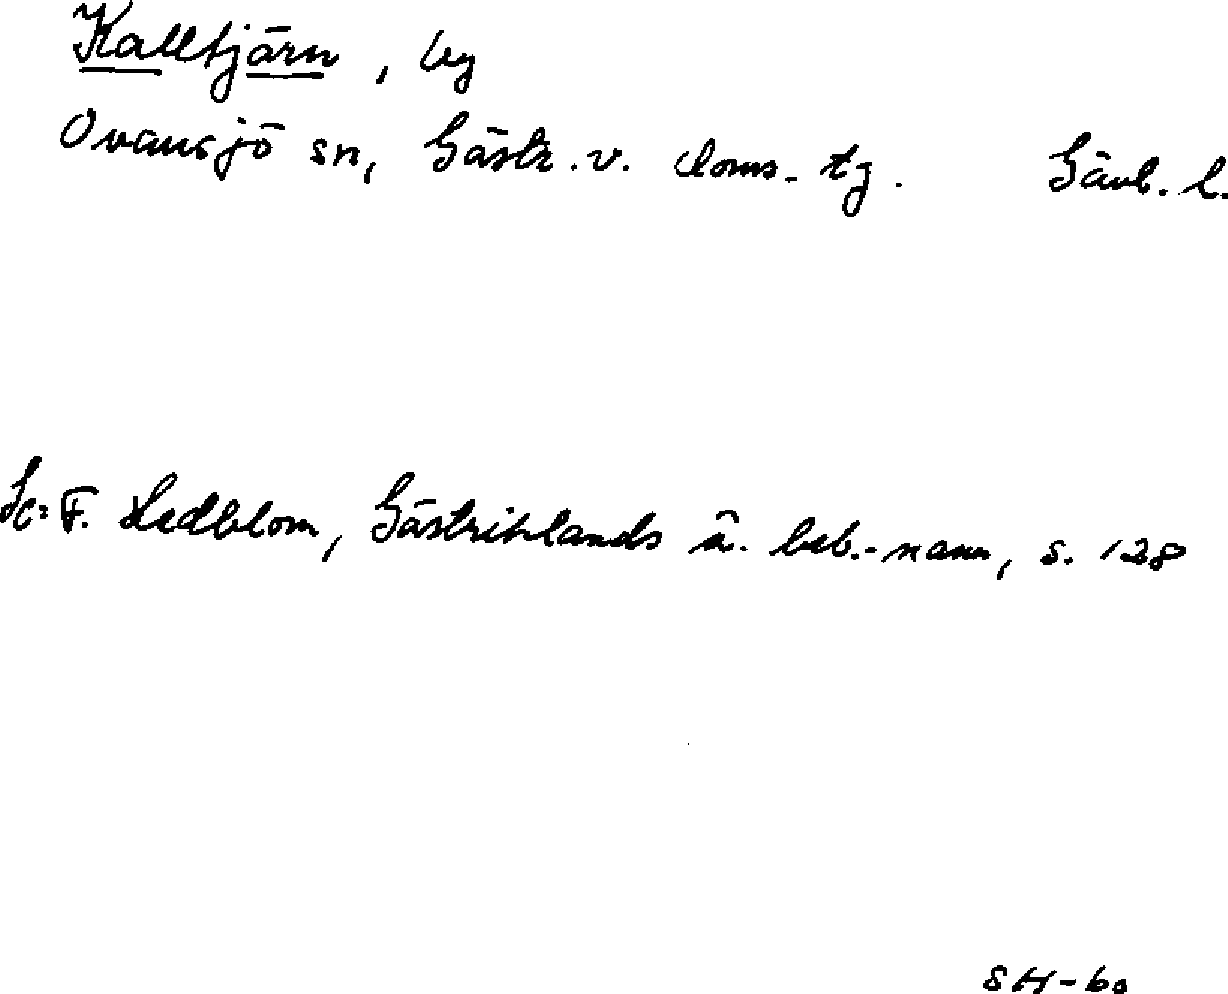 Kalltjärn, by
Ovansjö sn, Gästr. v. doms. tg. Gävl. l.
Se: F. Hedblom, Gästriklands ä. beb.-namn, s. 128
SH-60